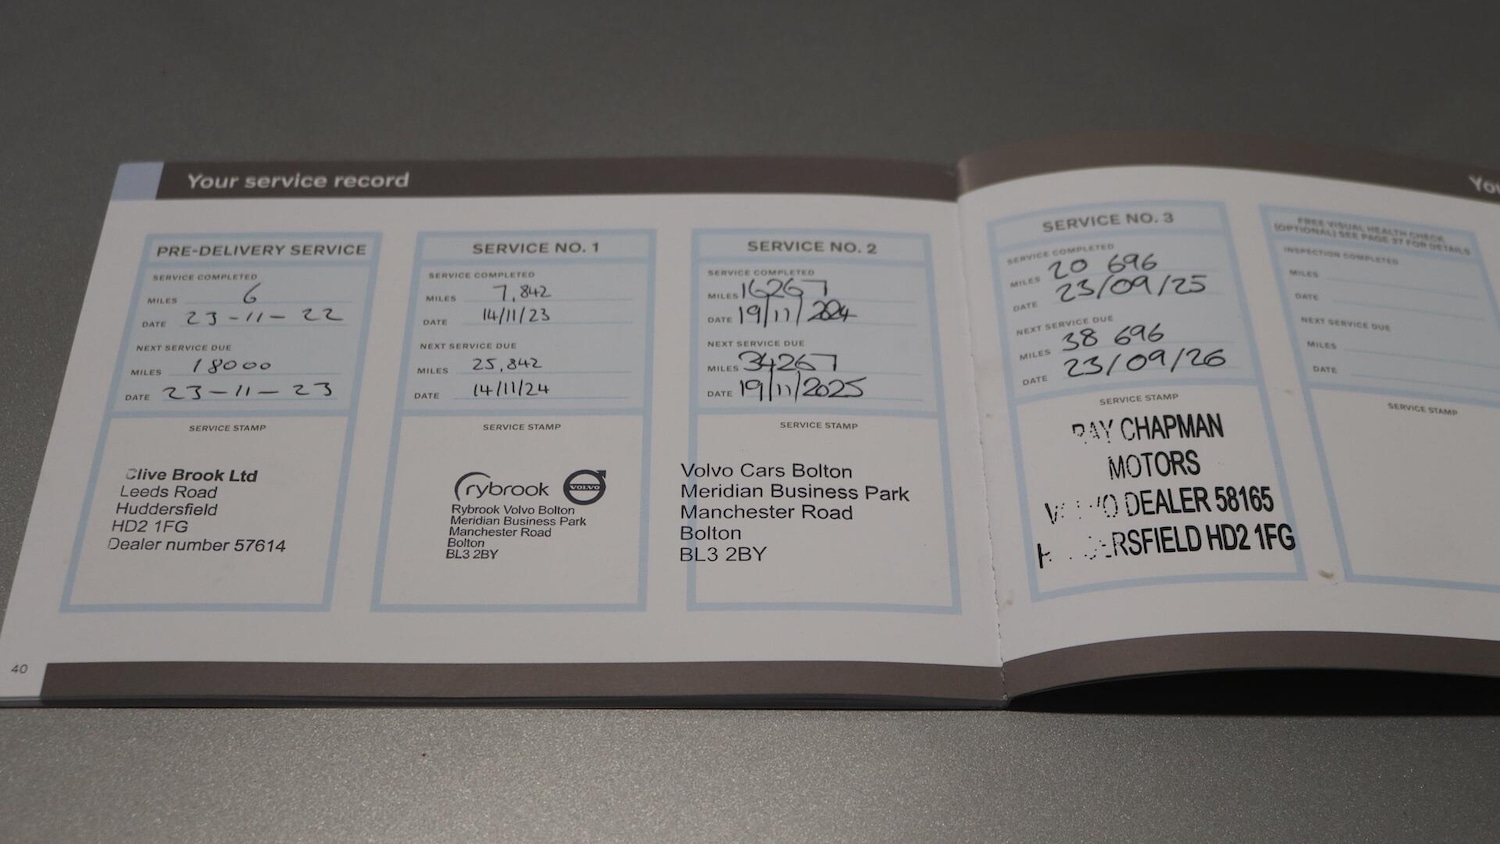 Your service record
PRE-DELIVERY SERVICE
SERVICE COMPLETED
MILES 6
DATE 23-11-22
NEXT SERVICE DUE
MILES 18000
DATE 23-11-23
SERVICE STAMP
Clive Brook Ltd
Leeds Road
Huddersfield
HD2 1FG
Dealer number 57614
SERVICE NO. 1
SERVICE COMPLETED
MILES 7,842
DATE 14/11/23
NEXT SERVICE DUE
MILES 25,842
DATE 14/11/24
SERVICE STAMP
rybrook VOLVO
Rybrook Volvo Bolton
Meridian Business Park
Manchester Road
Bolton
BL3 2BY
SERVICE NO. 2
SERVICE COMPLETED
MILES 16267
DATE 19/11/2024
NEXT SERVICE DUE
MILES 34267
DATE 19/11/2025
SERVICE STAMP
Volvo Cars Bolton
Meridian Business Park
Manchester Road
Bolton
BL3 2BY
40
You
SERVICE NO. 3
SERVICE COMPLETED
MILES 20 696
DATE 23/09/25
NEXT SERVICE DUE
MILES 38 696
DATE 23/09/26
SERVICE STAMP
RAY CHAPMAN
MOTORS
DEALER 58165
HD2 1FG
FREE VISUAL HEALTH CHECK
(OPTIONAL) SEE PAGE 37 FOR DETAILS
INSPECTION COMPLETED
MILES
DATE
NEXT SERVICE DUE
MILES
DATE
SERVICE STAMP